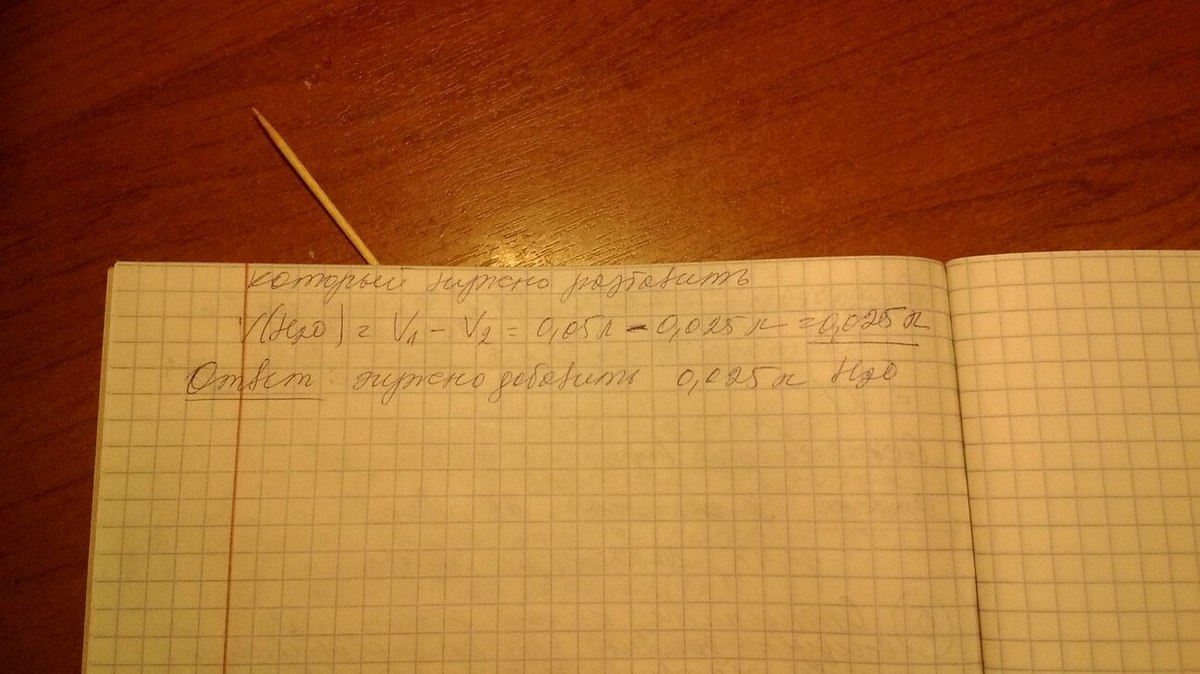 который нужно разбавить
V(H₂O) = V₁ - V₂ = 0,05л - 0,025 л = 0,025 л
Ответ: нужно добавить 0,025 л H₂O